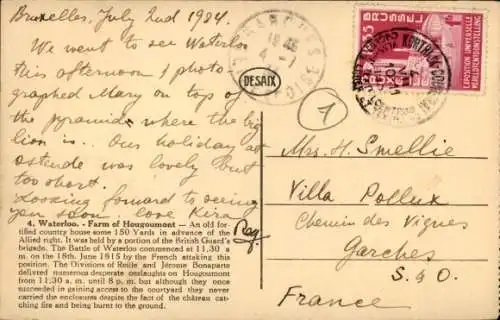 Bruxelles, July 2nd 1934.
We went to see Waterloo
this afternoon I photo-
graphed Mary on top of
the pyramide where the big
lion is.. Our holiday at
ostende was lovely but
too short.
Looking forward to seeing
you soon love Kira
4. Waterloo. - Farm of Hougoumont — An old for-
tified country house some 150 Yards in advance of the
Allied right. It was held by a portion of the British Guard's
brigade. The Battle of Waterloo commenced at 11,30 a
m. on the 18th. June 1815 by the French attaking this
position. The Divisions of Reille and Jérôme Bonaparte
delivered numerous desperate onslaughts on Hougoumont
from 11,30 a.m. until 8 p.m. but although they once
succeeded in gaining access to the courtyard they never
carried the enclosures despite the fact of the château cat-
ching fire and being burnt to the ground.
GARCHES
DESAIX
1
1935 BRUSSEL
EXPOSITION UNIVERSELLE
WERELDTENTOONSTELLING
Mrs. H. Smellie
Villa Pollux
Chemin des Vignes
Garches
S & O
France